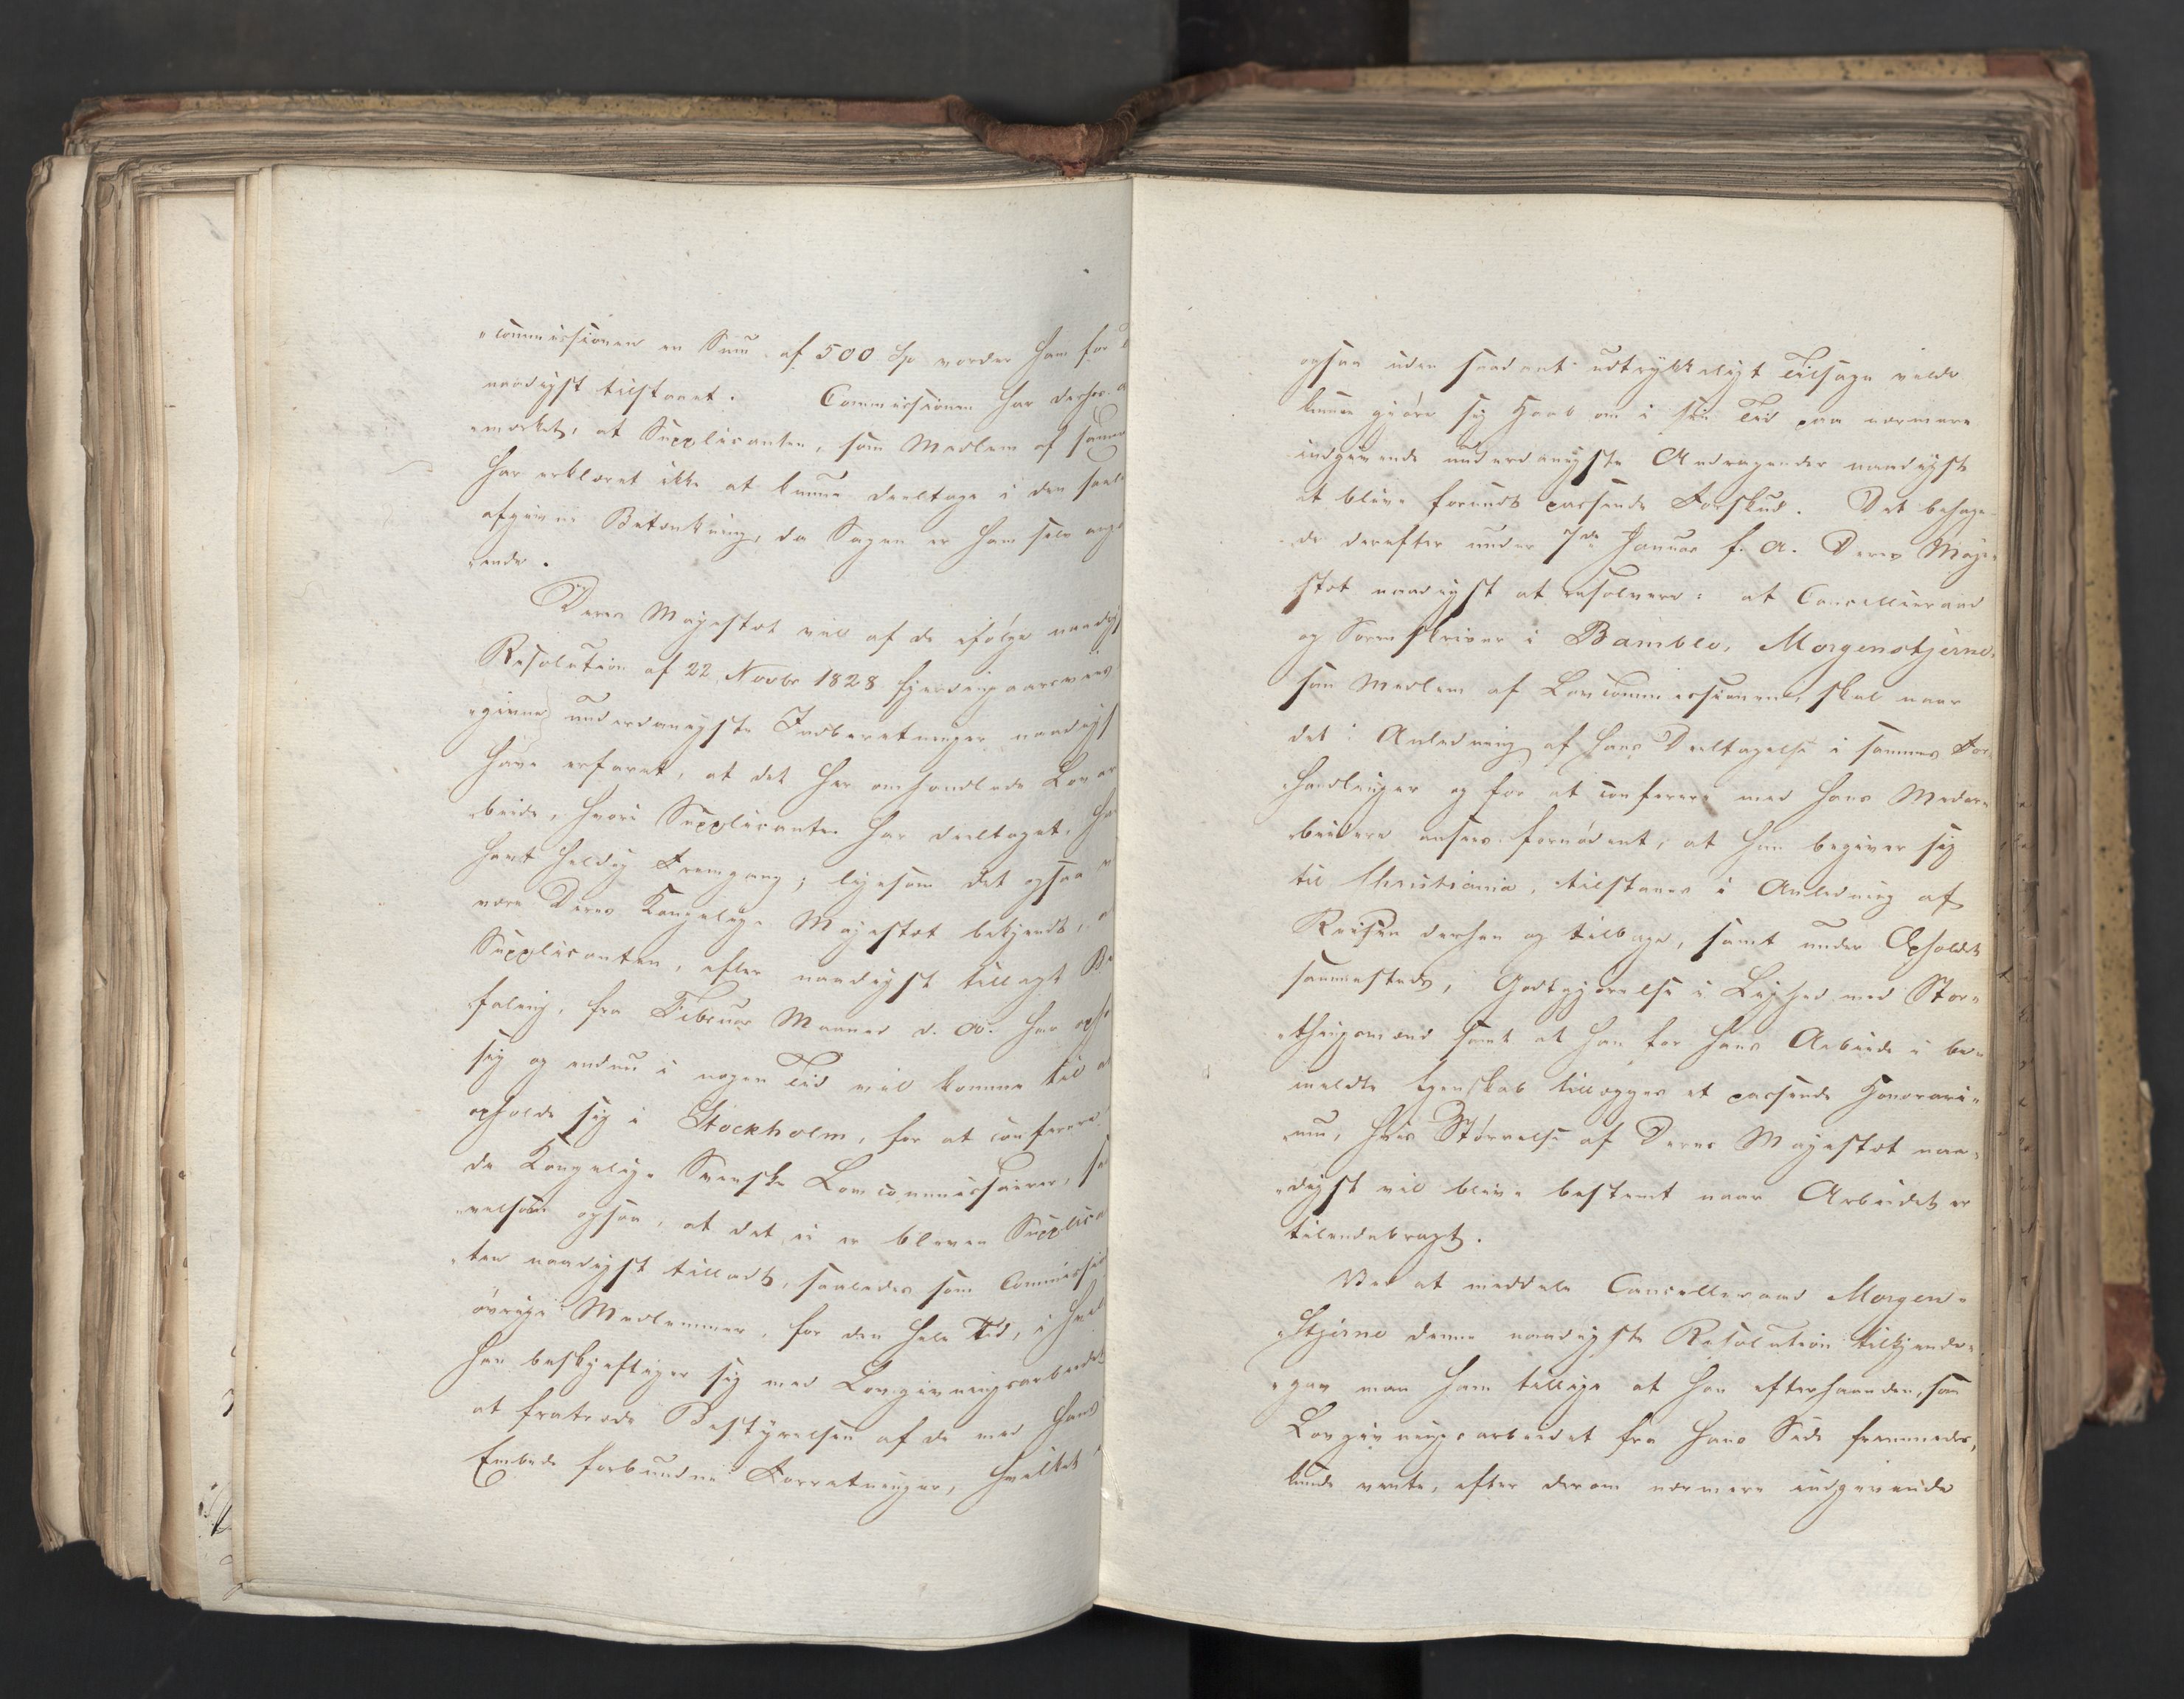 "commissionen en Sum af 500 Sp vorder ham for
naadigst tilstaaet. Commissionen har derhos
"mærket, at Supplicanten, som Medlem af samme
har erklæret ikke at kunne deeltage i den saal
afgivne Betænkning, da Sagen er ham selv ang
"ende.
Deres Majestæt vil af de ifølge naadigst
Resolution af 22 Novbr 1828 fjerdingaarsviis
"givne underdanigste Indberetninger naadigst
have erfaret, at det her omhandlede Lovar
"beide, hvori Supplicanten har deeltaget, har
havt heldig Fremgang; ligesom det ogsaa
være Deres Kongelige Majestæt bekjendt,
Supplicanten, efter naadigst tillagt Be
"faling, fra Februar Maaned d. A. har opho
sig og endnu i nogen Tid vil komme til at
opholde sig i Stockholm, for at conferere
de Kongelige Svenske Lovcommissairer, saa
"velsom ogsaa, at det ei er bleven Supplican
"ten naadigst tilladt, saaledes som Commissio
øvrige Medlemmer, for den hele Tid, i hvil
han beskjeftiger sig med Lovgivningsarbeidet
at fratræde Bestyrelsen af de med hans
Embede forbundne Forretninger, hvilket
ogsaa uden saadant udtrykkeligt Tilsagn vilde
kunne gjøre sig Haab om i sin Tid paa nærmere
indgivende underdanigste Andragender naadigst
at blive forundt passende Forskud. Det behage-
de derefter under 7de Januar f. A. Deres Maje-
stæt naadigst at resolvere: at Cancelliraad
og Sorenskriver i Bamble, Morgenstjerne,
som Medlem af Lovcommissionen, skal naar
det i Anledning af hans Deeltagelse i sammes For-
handlinger og for at conferere med hans Medar-
"beidere ansees fornødent, at han begiver sig
til Christiania, tilstaaes i Anledning af
Reisen derhen og tilbage, samt under Opholdet
sammesteds, Godtgjørelse i Lighed med Stor-
"thingsmænd samt at han for hans Arbeide i be-
meldte Egenskab tillægges et passende Honorari-
"um, hvis Størrelse af Deres Majestæt naa-
"digst vil blive bestemt naar Arbeidet er
tilendebragt.
Ved at meddele Cancelliraad Morgen-
"stjerne denne naadigste Resolution tilkjende-
"gav man ham tillige at han efterhaanden, som
Lovgivningsarbeidet fra hans Side fremmedes,
kunde vente, efter derom nærmere indgivende